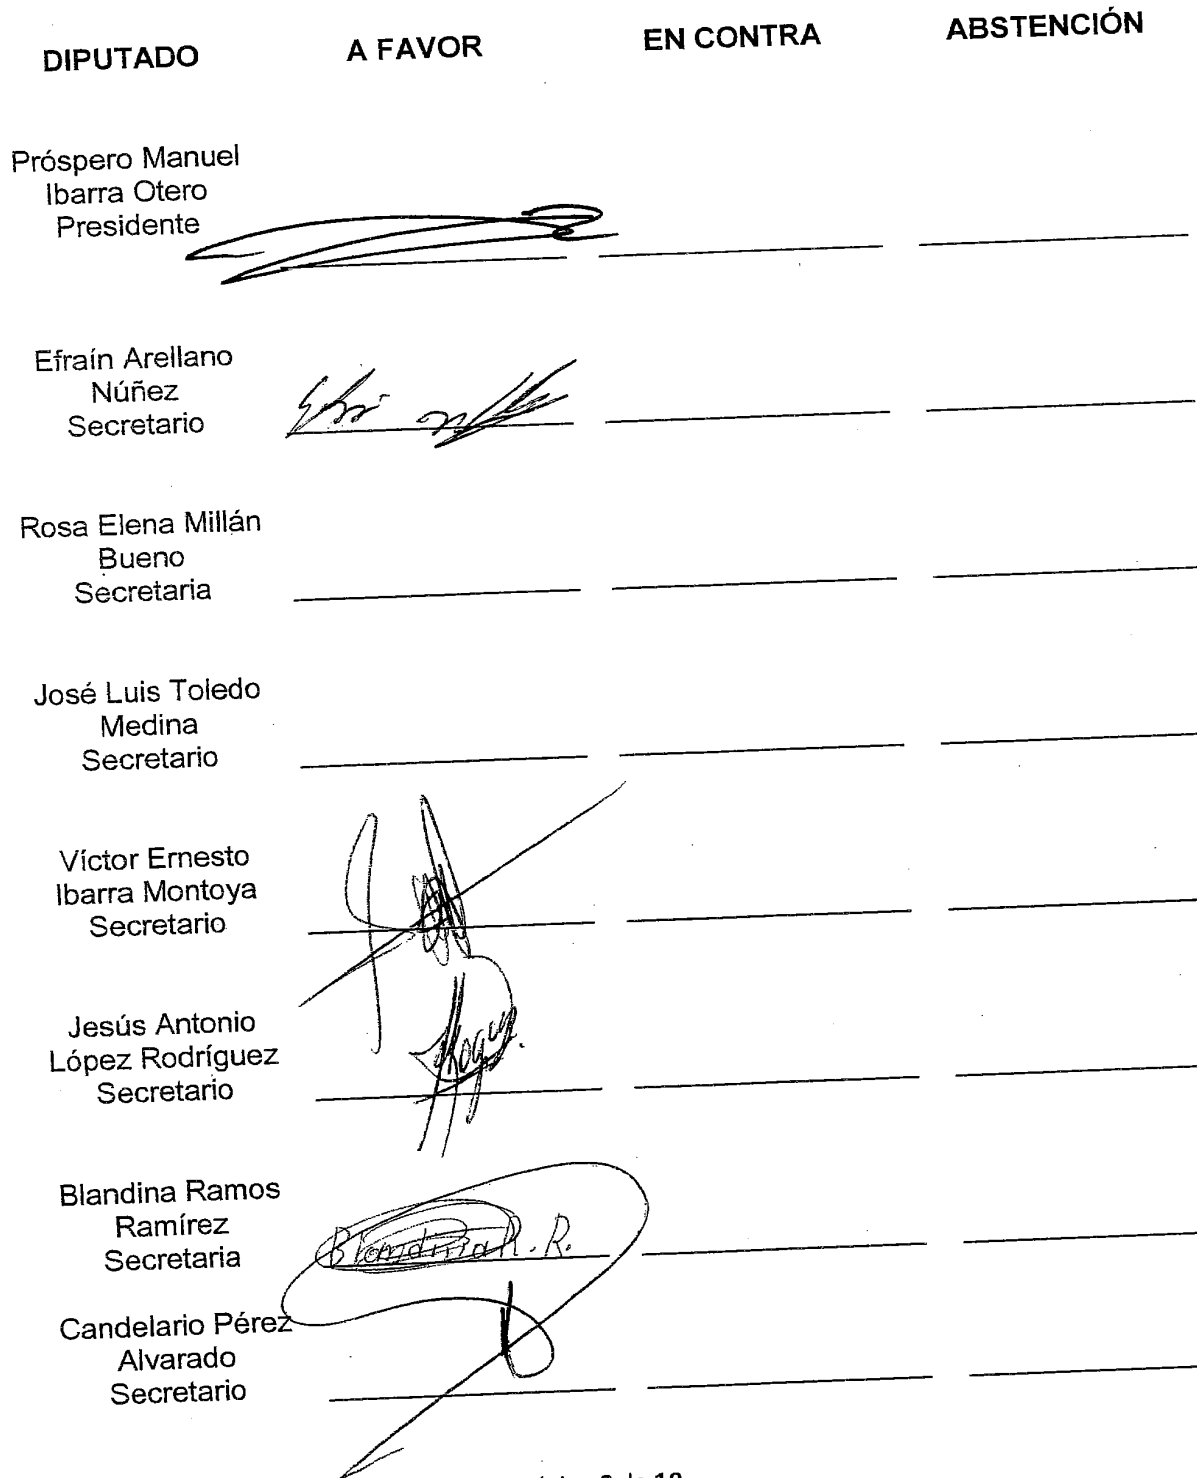 DIPUTADO A FAVOR EN CONTRA ABSTENCIÓN
Próspero Manuel
Ibarra Otero
Presidente
Efraín Arellano
Núñez
Secretario
Rosa Elena Millán
Bueno
Secretaria
José Luis Toledo
Medina
Secretario
Víctor Ernesto
Ibarra Montoya
Secretario
Jesús Antonio
López Rodríguez
Secretario
Blandina Ramos
Ramírez
Secretaria
Blandina R. R.
Candelario Pérez
Alvarado
Secretario